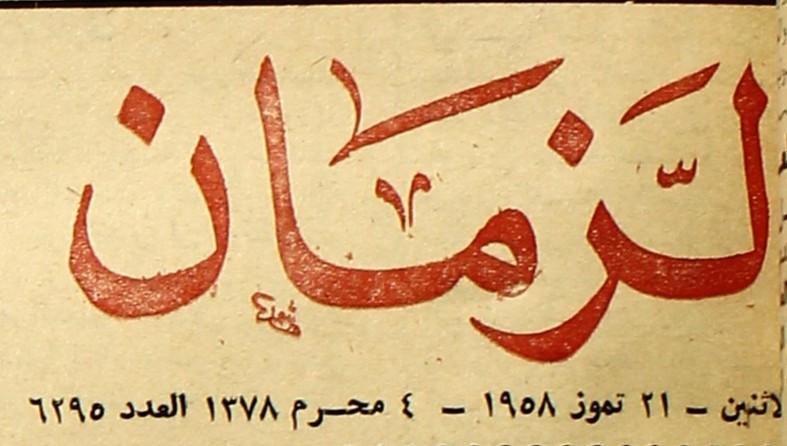 لزمان
لاثنين - ٢١ تموز ١٩٥٨ - ٤ محرم ١٣٧٨ العدد ٦٢٩٥